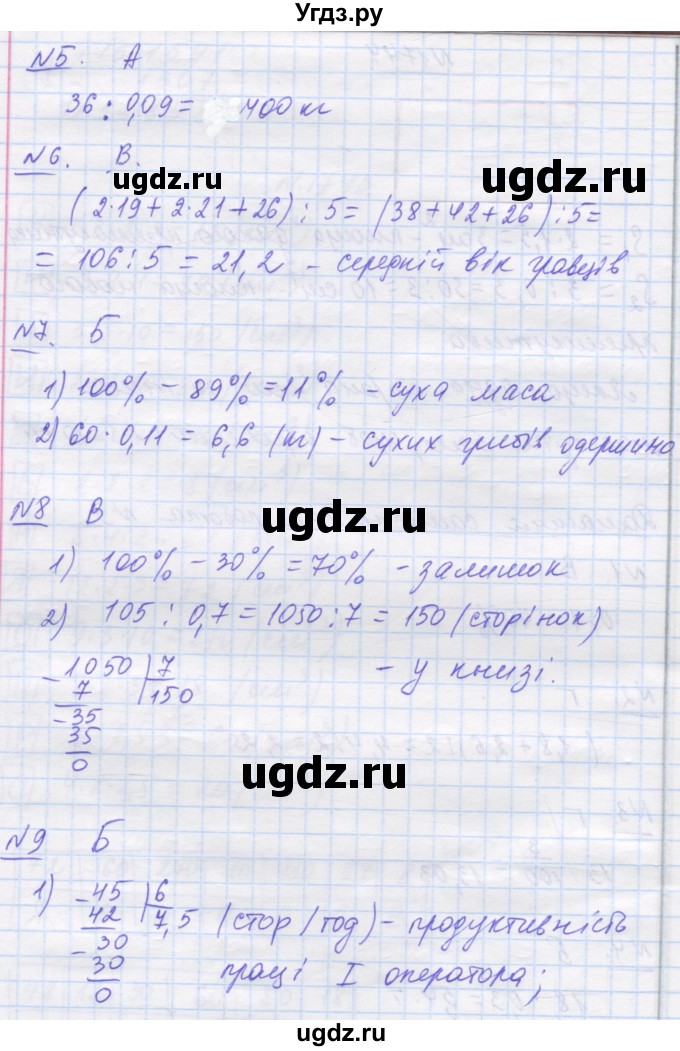 Угдз.ру
№5. А
36 : 0,09 = 400 кг
№6. В.
(2·19 + 2·21 + 26) : 5 = (38 + 42 + 26) : 5 =
= 106 : 5 = 21,2 - середній вік гравців
№7. Б
1) 100% - 89% = 11% - суха маса
2) 60 · 0,11 = 6,6 (кг) - сухих грибів одержимо
№8 В
1) 100% - 30% = 70% - залишок
2) 105 : 0,7 = 1050 : 7 = 150 (сторінок)
- у книзі.
-1050 | 7
7 | 150
-35
35
0
№9 Б
1) -45 | 6
42 | 7,5 (стор/год) - продуктивність
-30
30 праці І оператора;
0
ugdz.ru
ugdz.ru
ugdz.ru
ugdz.ru
ugdz.ru
ugdz.ru